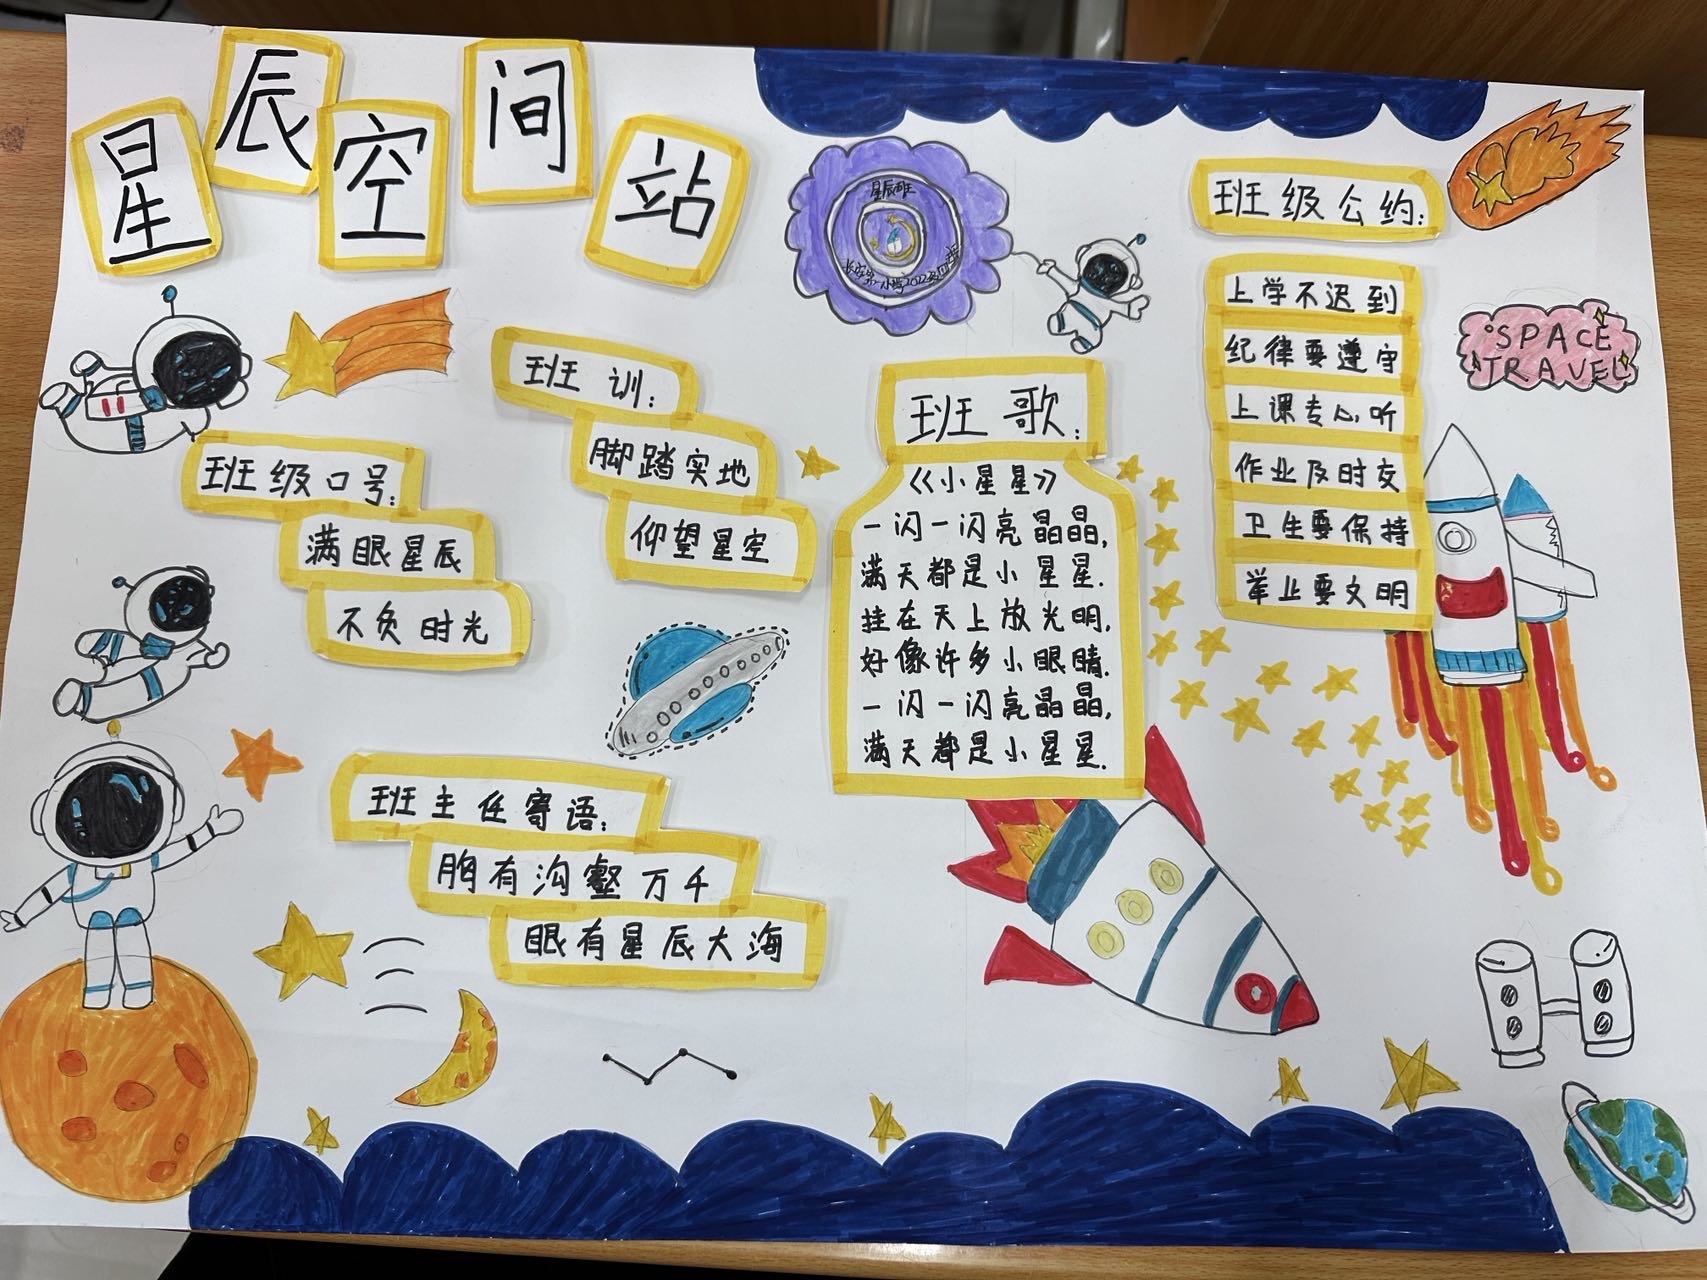 星辰空间站
星辰班
班级口号:
满眼星辰
不负时光
班训:
脚踏实地
仰望星空
班主任寄语:
胸有沟壑万千
眼有星辰大海
班歌:
《小星星》
一闪一闪亮晶晶,
满天都是小星星.
挂在天上放光明,
好像许多小眼睛.
一闪一闪亮晶晶,
满天都是小星星.
班级公约:
上学不迟到
纪律要遵守
上课专心听
作业及时交
卫生要保持
举止要文明
SPACE
TRAVEL